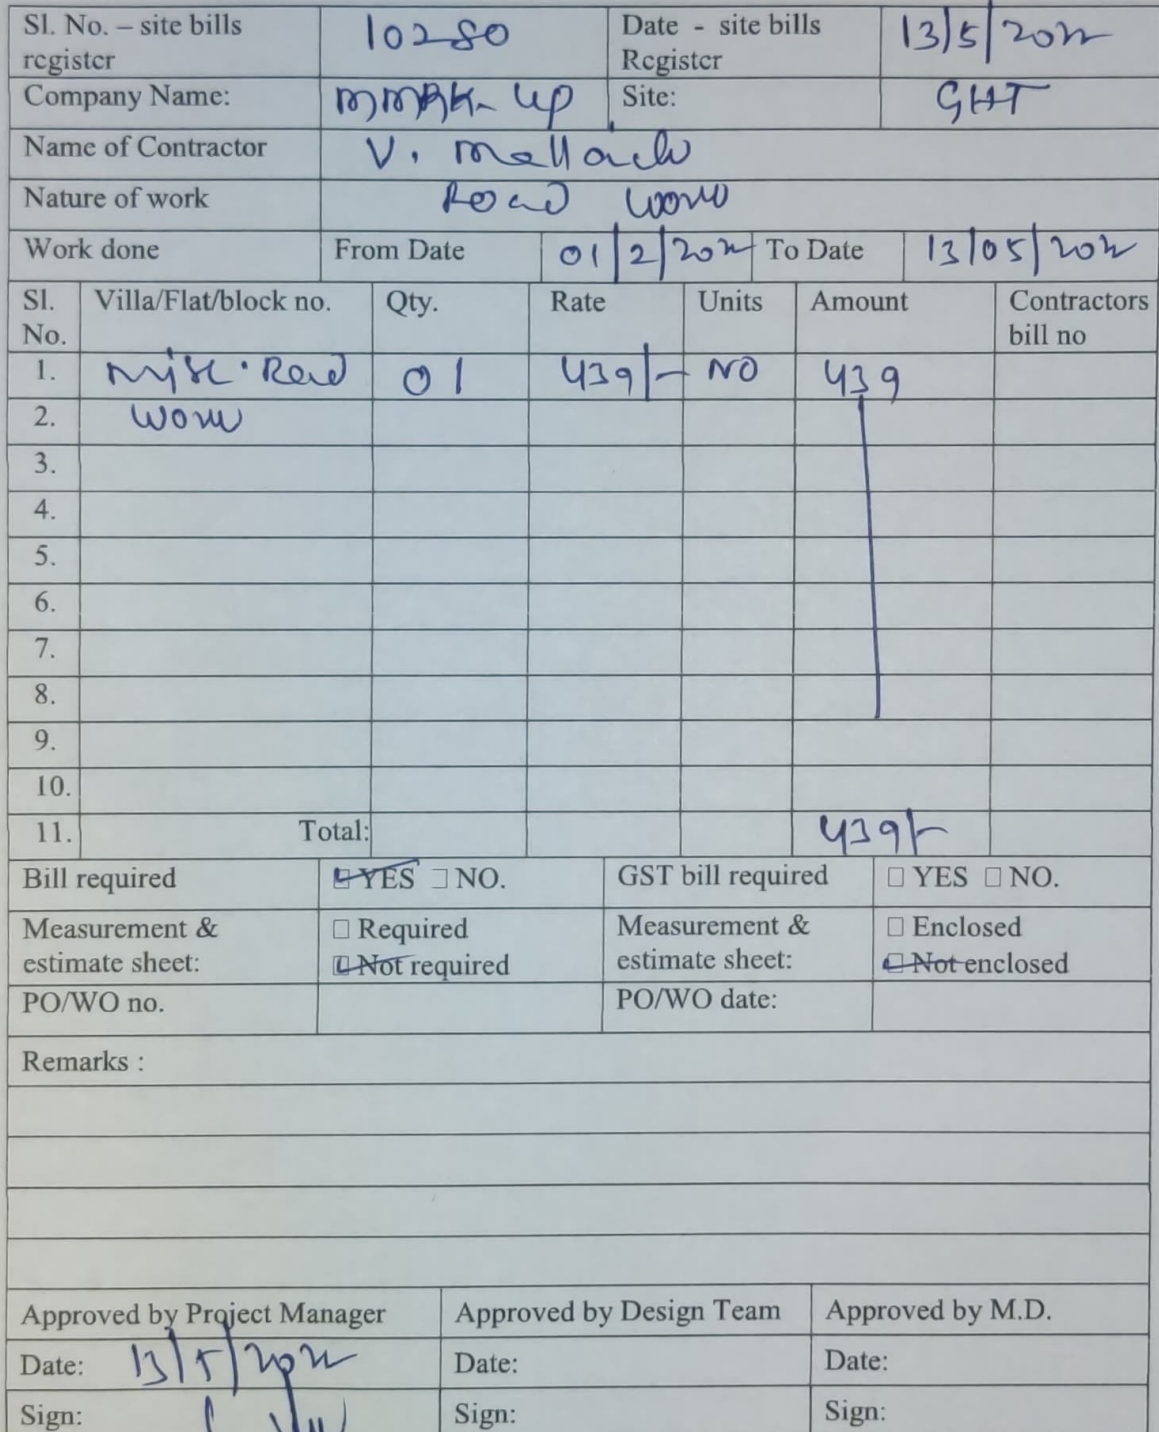 Sl. No. – site bills register 10280 Date - site bills Register 13/5/2022
Company Name: MMRK-UP Site: GHT
Name of Contractor V.
Nature of work Road work
Work done From Date 01/2/2022 To Date 13/05/2022
Sl. No. Villa/Flat/block no. Qty. Rate Units Amount Contractors bill no
1. Misc. Road 01 439/- NO 439
2. work
3.
4.
5.
6.
7.
8.
9.
10.
11. Total: 439/-
Bill required □ YES □ NO. GST bill required □ YES □ NO.
Measurement & estimate sheet: □ Required Measurement & estimate sheet: □ Enclosed
□ Not required □ Not enclosed
PO/WO no. PO/WO date:
Remarks :
Approved by Project Manager Approved by Design Team Approved by M.D.
Date: 13/5/2022 Date: Date:
Sign: Sign: Sign: